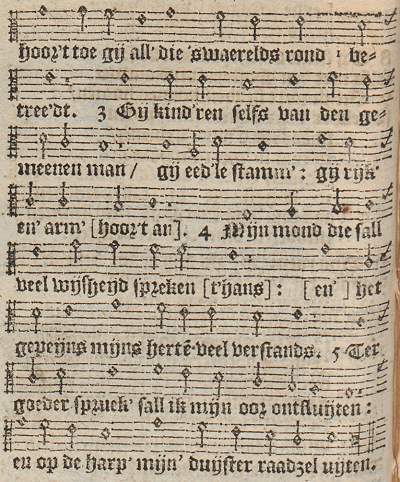 hoor't toe gij all' die 'swaerelds rond : be-
tree'dt. 3 Gij kind'ren selfs van den ge-
meenen man / gij eed'le stamm' : gij rijk'
en' arm' [hoor't an]. 4 Mijn mond die sall
veel wijsheyd spreken [t'hans] : [en'] het
gepeijns mijns hertē veel verstands. 5 Ter
goeder spreuk' sall ik mijn oor ontsluijten :
en op de harp' mijn' duijster raadzel uijten.